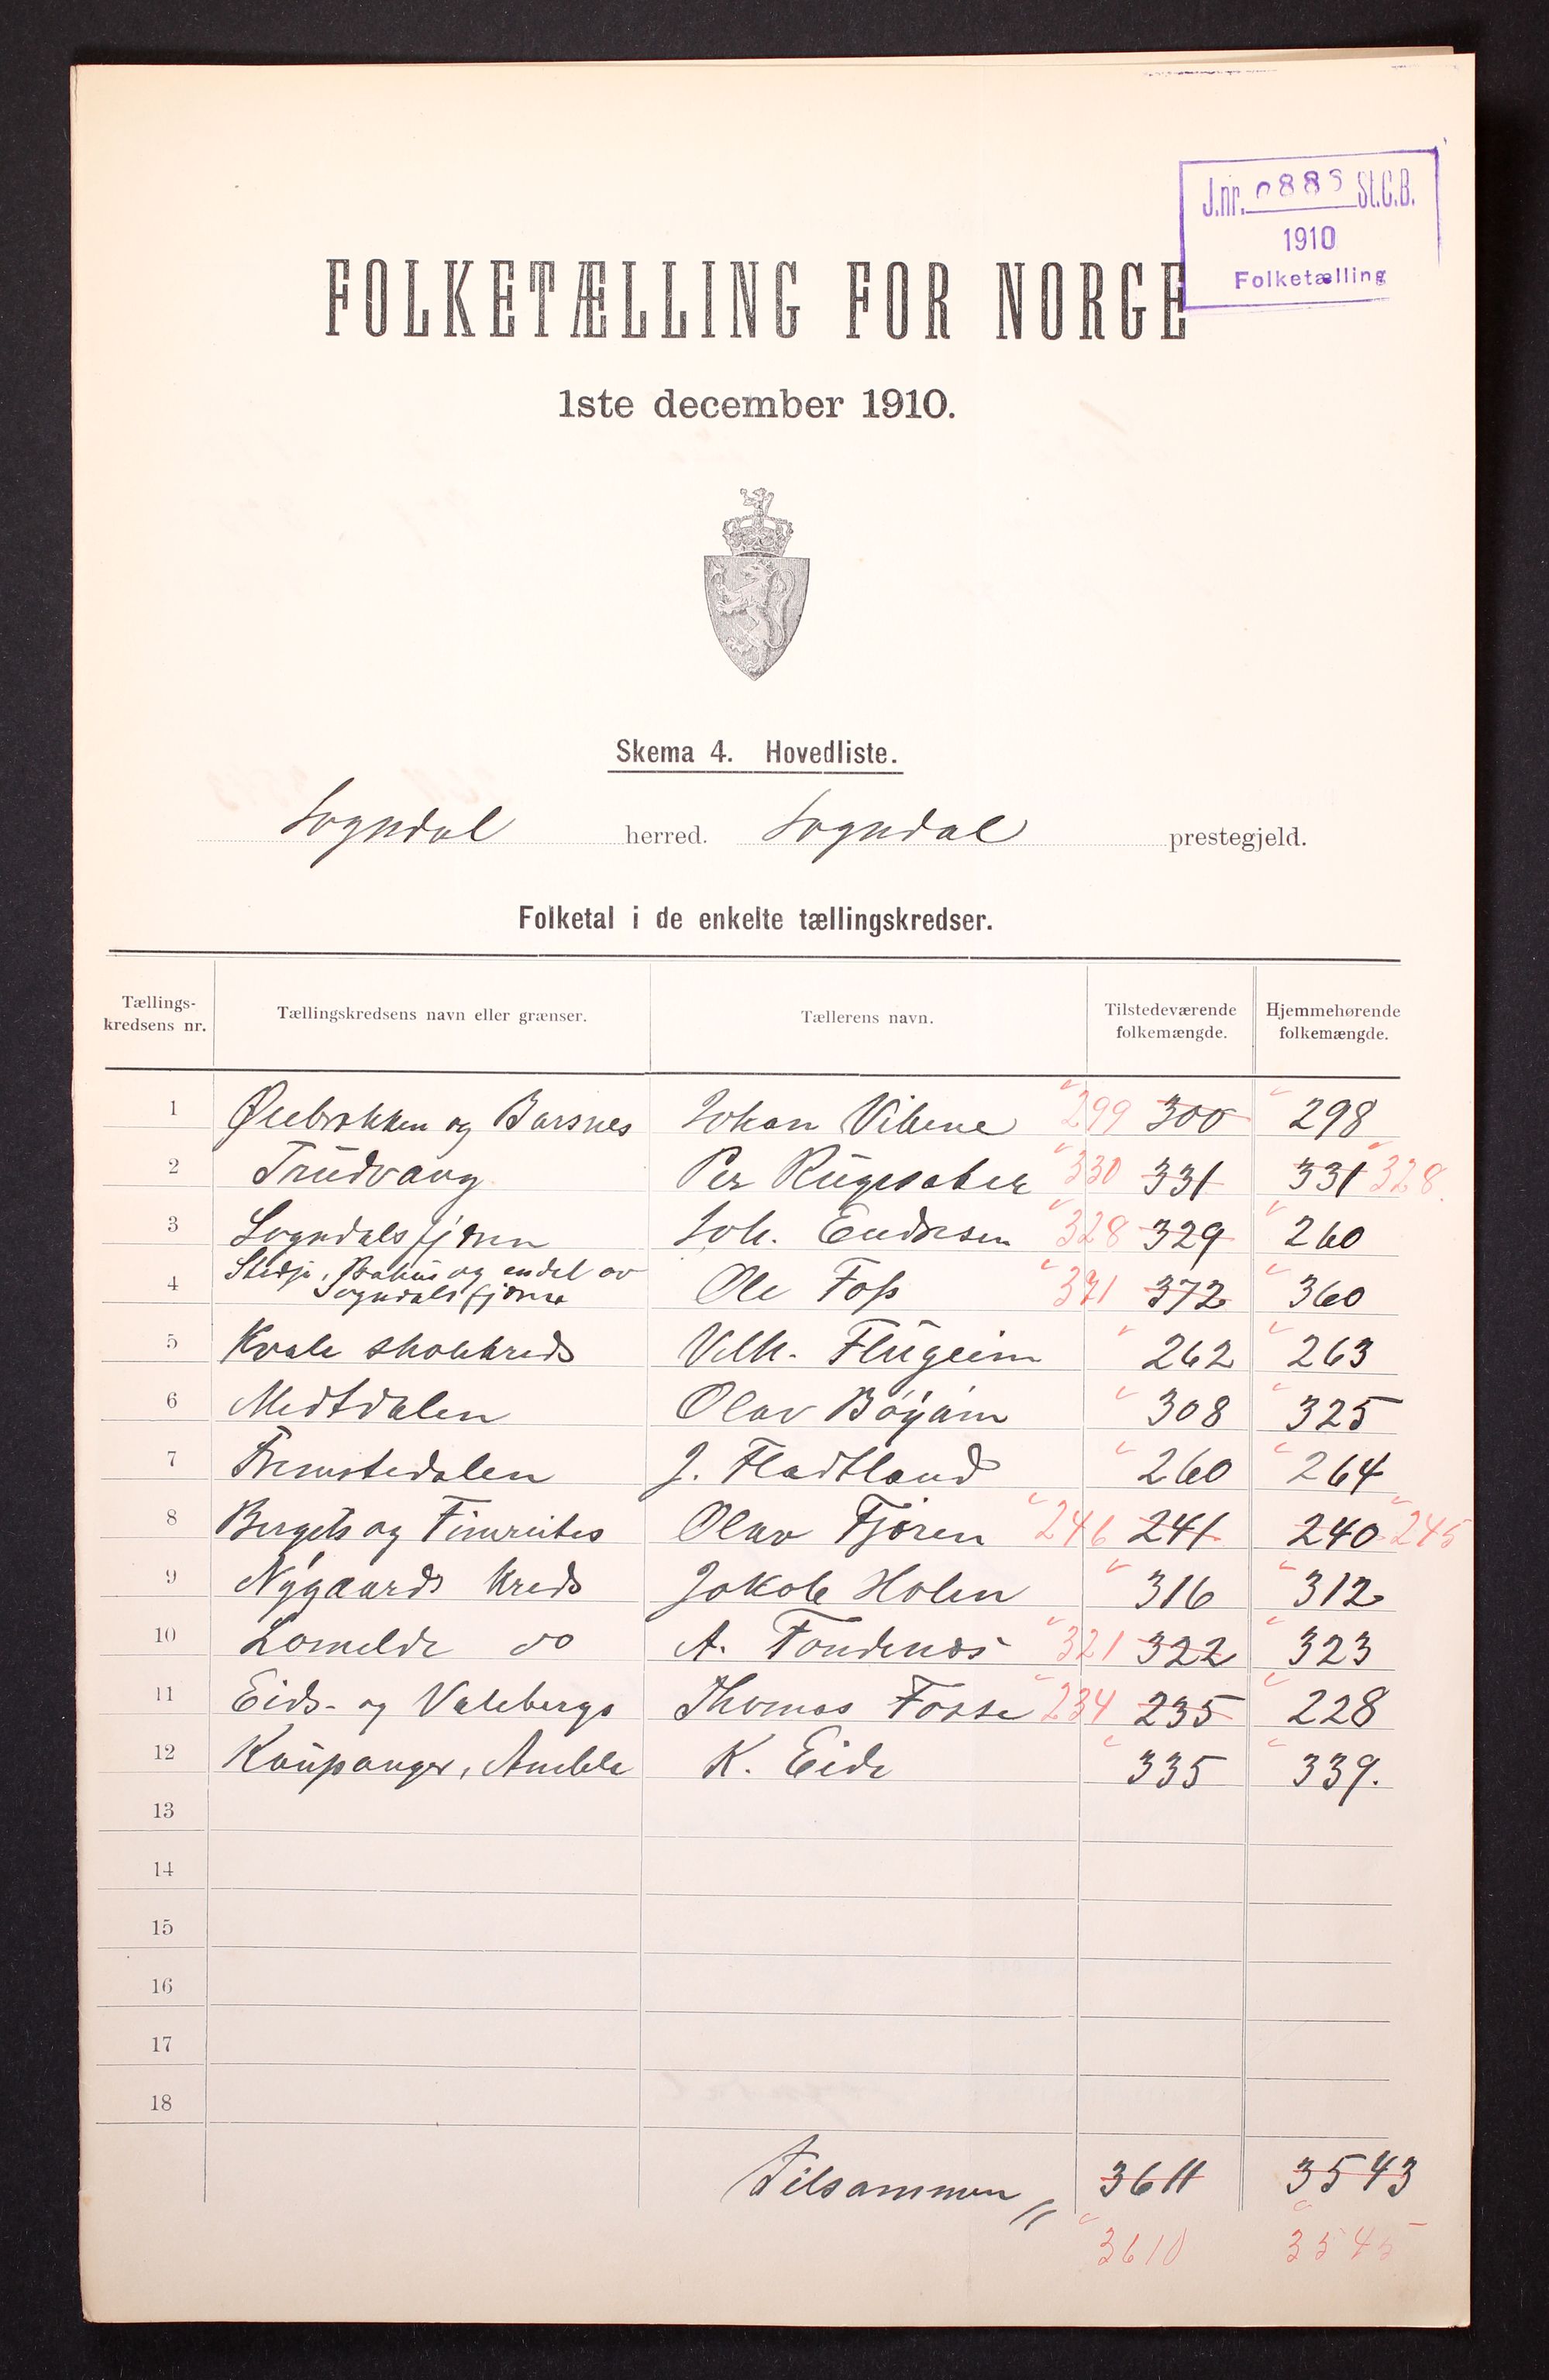 J.nr. 0885 St.C.B.
1910
Folketælling
FOLKETÆLLING FOR NORGE
1ste december 1910.
Skema 4. Hovedliste.
Sogndal herred. Sogndal prestegjeld.
Folketal i de enkelte tællingskredser.
Tællings-kredsens nr. Tællingskredsens navn eller grænser. Tællerens navn. Tilstedeværende folkemængde. Hjemmehørende folkemængde.
1 og Barsnes Johan 299 300 298
2 Trudvang Per 330 331 331 328
3 Sogndalsfjøren Joh. Endresen 328 329 260
4 Stedje, og endel av Sogndalsfjøren Ole Foss 371 372 360
5 Kvale skolekreds Vilh. Flugeim 262 263
6 Medtdalen Olav Bøyum 308 325
7 Fremstedalen J. Fladtland 260 264
8 Bergets og Fimreites Olav Fjøren 246 241 240 245
9 Nygaards kreds Jakob Holen 316 312
10 Lomelde do A. Tondenes 321 322 323
11 Eids- og Valebergs Thomas Fosse 234 235 228
12 Kaupanger, Amble K. Eide 335 339.
13
14
15
16
17
18
Tilsammen 3611 3543
3610 3545